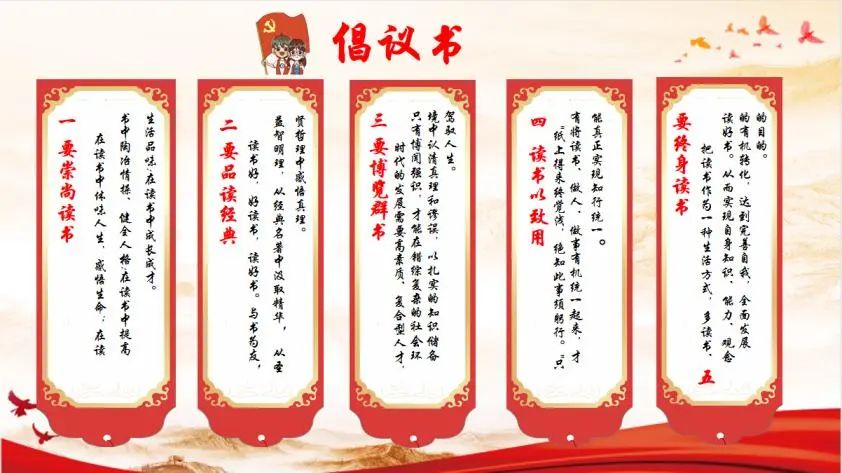 倡议书
一 要崇尚读书
在读书中体味人生、感悟生命;在读
书中陶冶情操、健全人格;在读书中提高
生活品味;在读书中成长成才。
二 要品读经典
读书好,好读书,读好书。与书为友,
益智明理,从经典名著中汲取精华, 从圣
贤哲理中感悟真理。
三 要博览群书
时代的发展需要高素质、复合型人才,
只有博闻强识,才能在错综复杂的社会环
境中认清真理和谬误,以扎实的知识储备
驾驭人生。
四 读书以致用
“纸上得来终觉浅,绝知此事须躬行。”只
有将读书、做人、做事有机统一起来,才
能真正实现知行统一。
五
要终身读书
把读书作为一种生活方式,多读书、
读好书。从而实现自身知识、能力、观念
的有机转化,达到完善自我,全面发展
的目的。